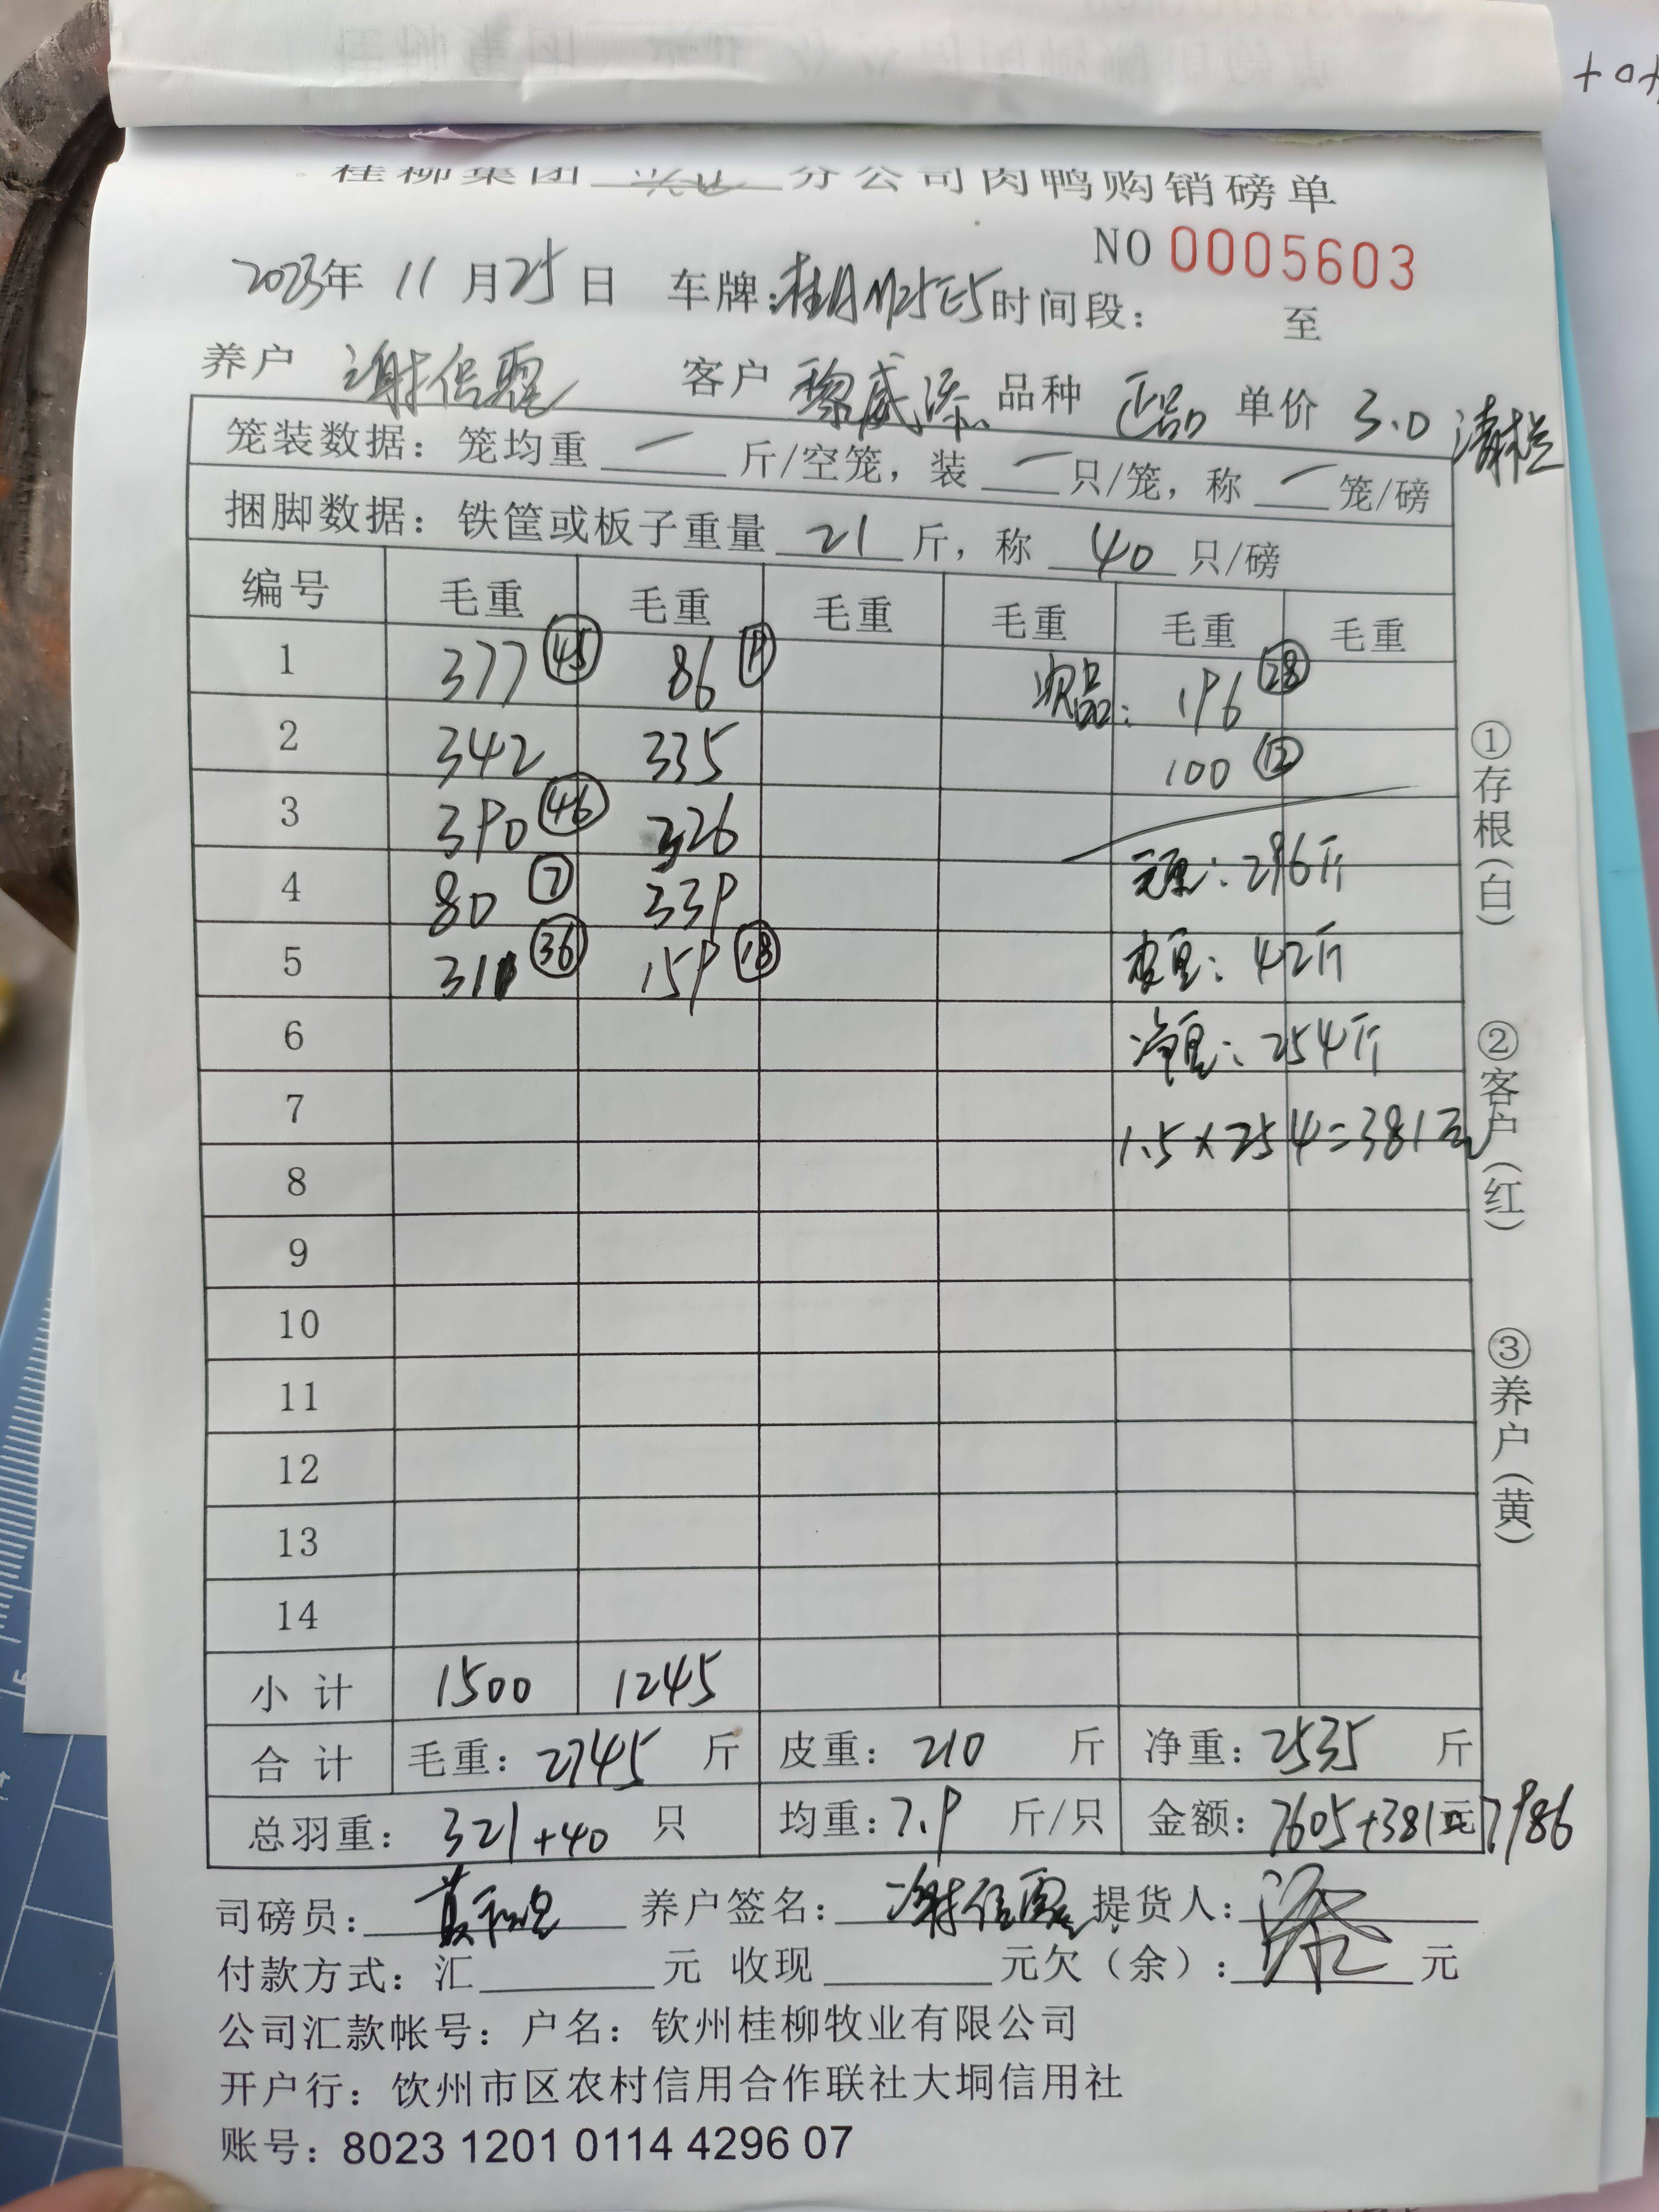 桂柳集团 分公司肉鸭购销磅单
NO 0005603
2023年 11月25日 车牌: 时间段: 至
养户 谢信露 客户 黎威添 品种 正品 单价 3.0 清栏
笼装数据: 笼均重 一 斤/空笼, 装 一 只/笼, 称 一 笼/磅
捆脚数据: 铁筐或板子重量 21 斤, 称 40 只/磅
编号 毛重 毛重 毛重 毛重 毛重 毛重
1 377 ㊺ 86 次品: 196 (28)
2 342 335 100 (12)
3 390 (46) 326
4 80 (7) 339 毛重: 296斤
5 311 (36) 159 (18) 皮重: 42斤
6 净重: 254斤
7 1.5×254=381元
8
9
10
11
12
13
14
小计 1500 1245
合计 毛重: 2745 斤 皮重: 210 斤 净重: 2535 斤
总羽重: 321+40 只 均重: 7.9 斤/只 金额: 7605+381元 7986
司磅员: 养户签名: 谢信露 提货人:
付款方式: 汇 元 收现 元欠(余): 元
公司汇款帐号: 户名: 钦州桂柳牧业有限公司
开户行: 钦州市区农村信用合作联社大垌信用社
账号: 8023 1201 0114 4296 07
①存根(白)
②客户(红)
③养户(黄)